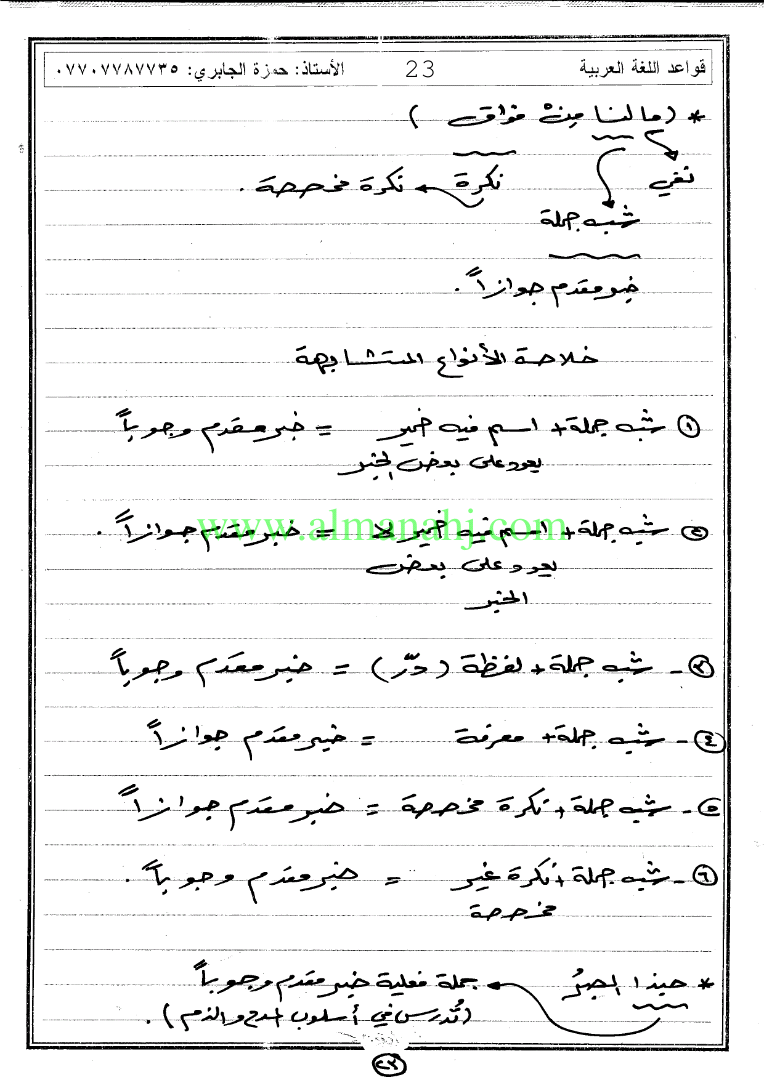 قواعد اللغة العربية 23 الأستاذ: حمزة الجابري: ٠٧٧٠٧٧٨٧٧٣٥
* (ما لنا مِنْ فواق)
نفي نكرة نكرة مخصصة.
شبه جملة
خبر مقدم جوازاً.
خلاصة الأنواع المتشابهة
١ شبه جملة + اسم فيه ضمير = خبر مقدم وجوباً
يعود على بعض الخبر
٢ شبه جملة + اسم فيه ضمير لا = خبر مقدم جوازاً.
يعود على بعض
الخبر
www.almanahj.com
٣- شبه جملة + لفظة (درّ) = خبر مقدم وجوباً
٤- شبه جملة + معرفة = خبر مقدم جوازاً
٥- شبه جملة + نكرة مخصصة = خبر مقدم جوازاً
٦- شبه جملة + نكرة غير = خبر مقدم وجوباً.
مخصصة
* حبذا الصبرُ جملة فعلية خبر مقدم وجوباً
(تُدرس في أسلوب المدح والذم).
٢٣